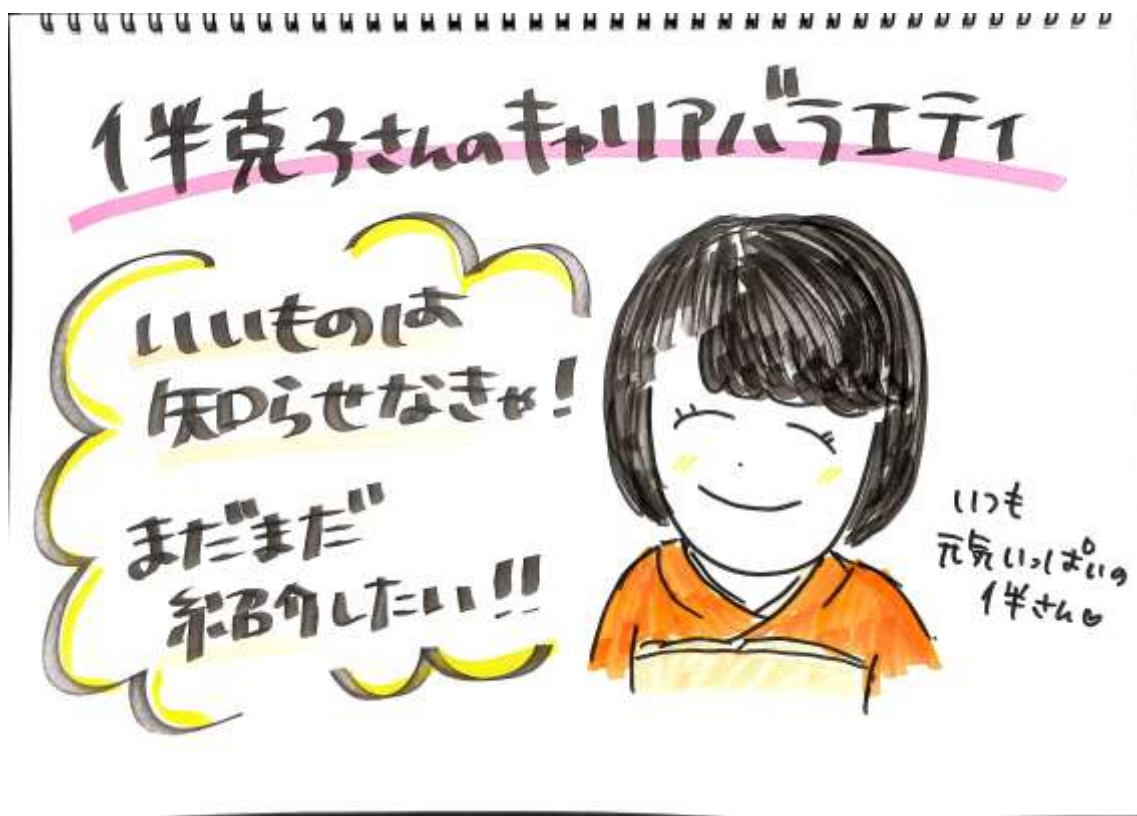 伴克子さんのキャリアバラエティ
いいものは
知らせなきゃ!
まだまだ
紹介したい!!
いつも
元気いっぱいの
伴さん♥